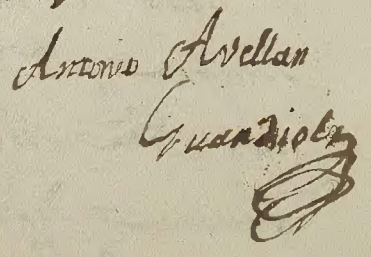 Antonio Avellan
Guardiola